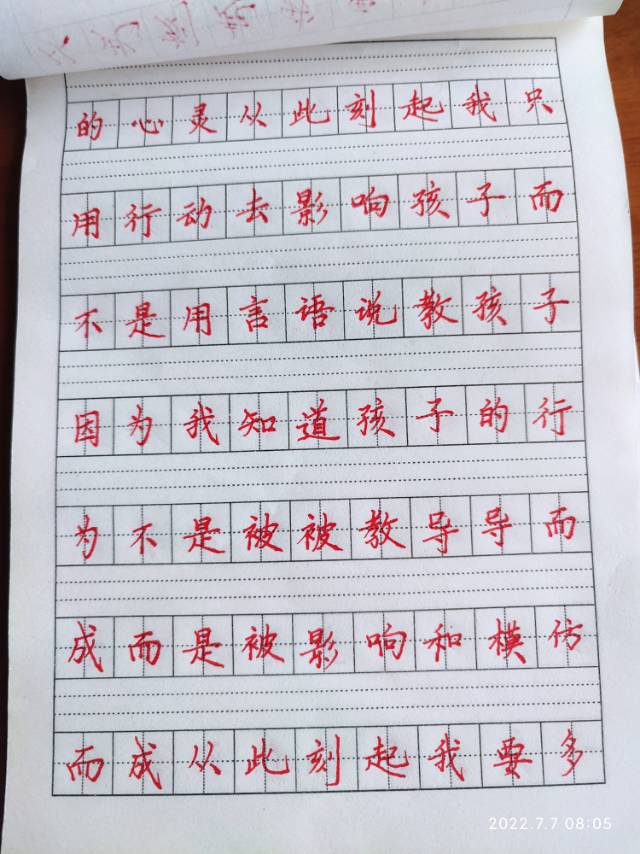 的心灵从此刻起我只
用行动去影响孩子而
不是用言语说教孩子
因为我知道孩子的行
为不是被被教导导而
成而是被影响和模仿
而成从此刻起我要多
2022.7.7 08:05